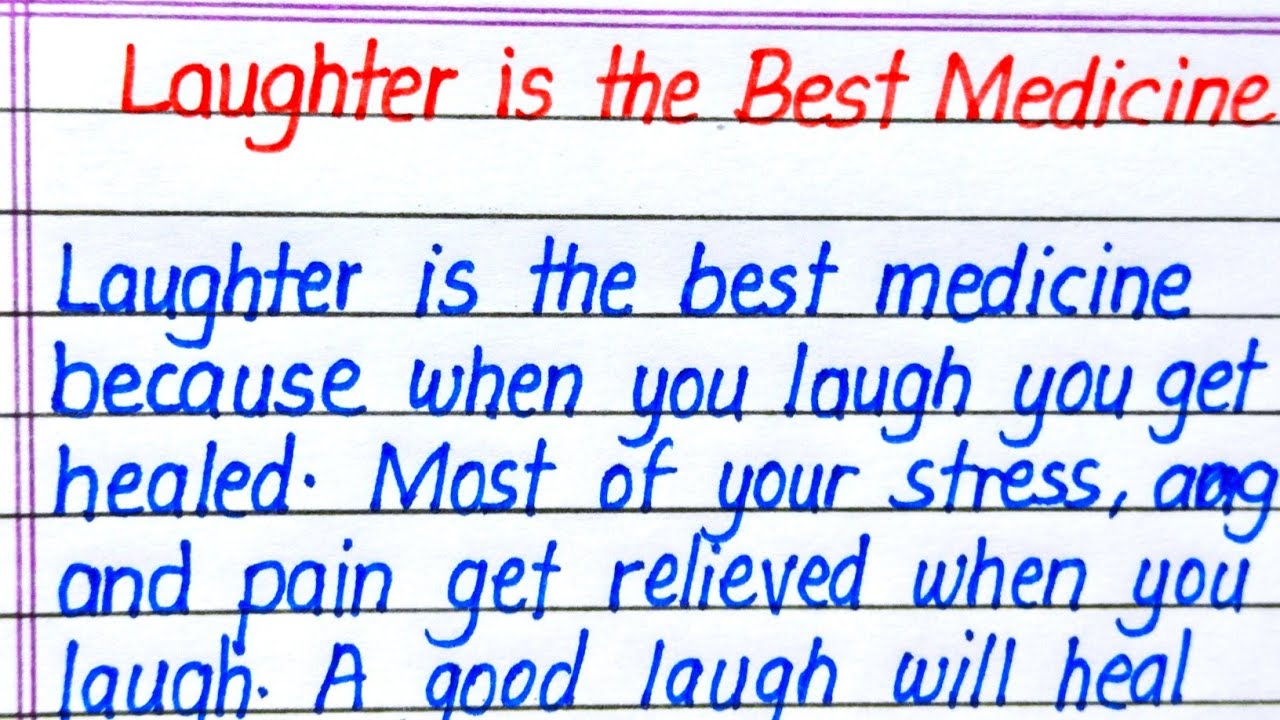 Laughter is the Best Medicine
Laughter is the best medicine
because when you laugh you get
healed. Most of your stress,
and pain get relieved when you
laugh. A good laugh will heal